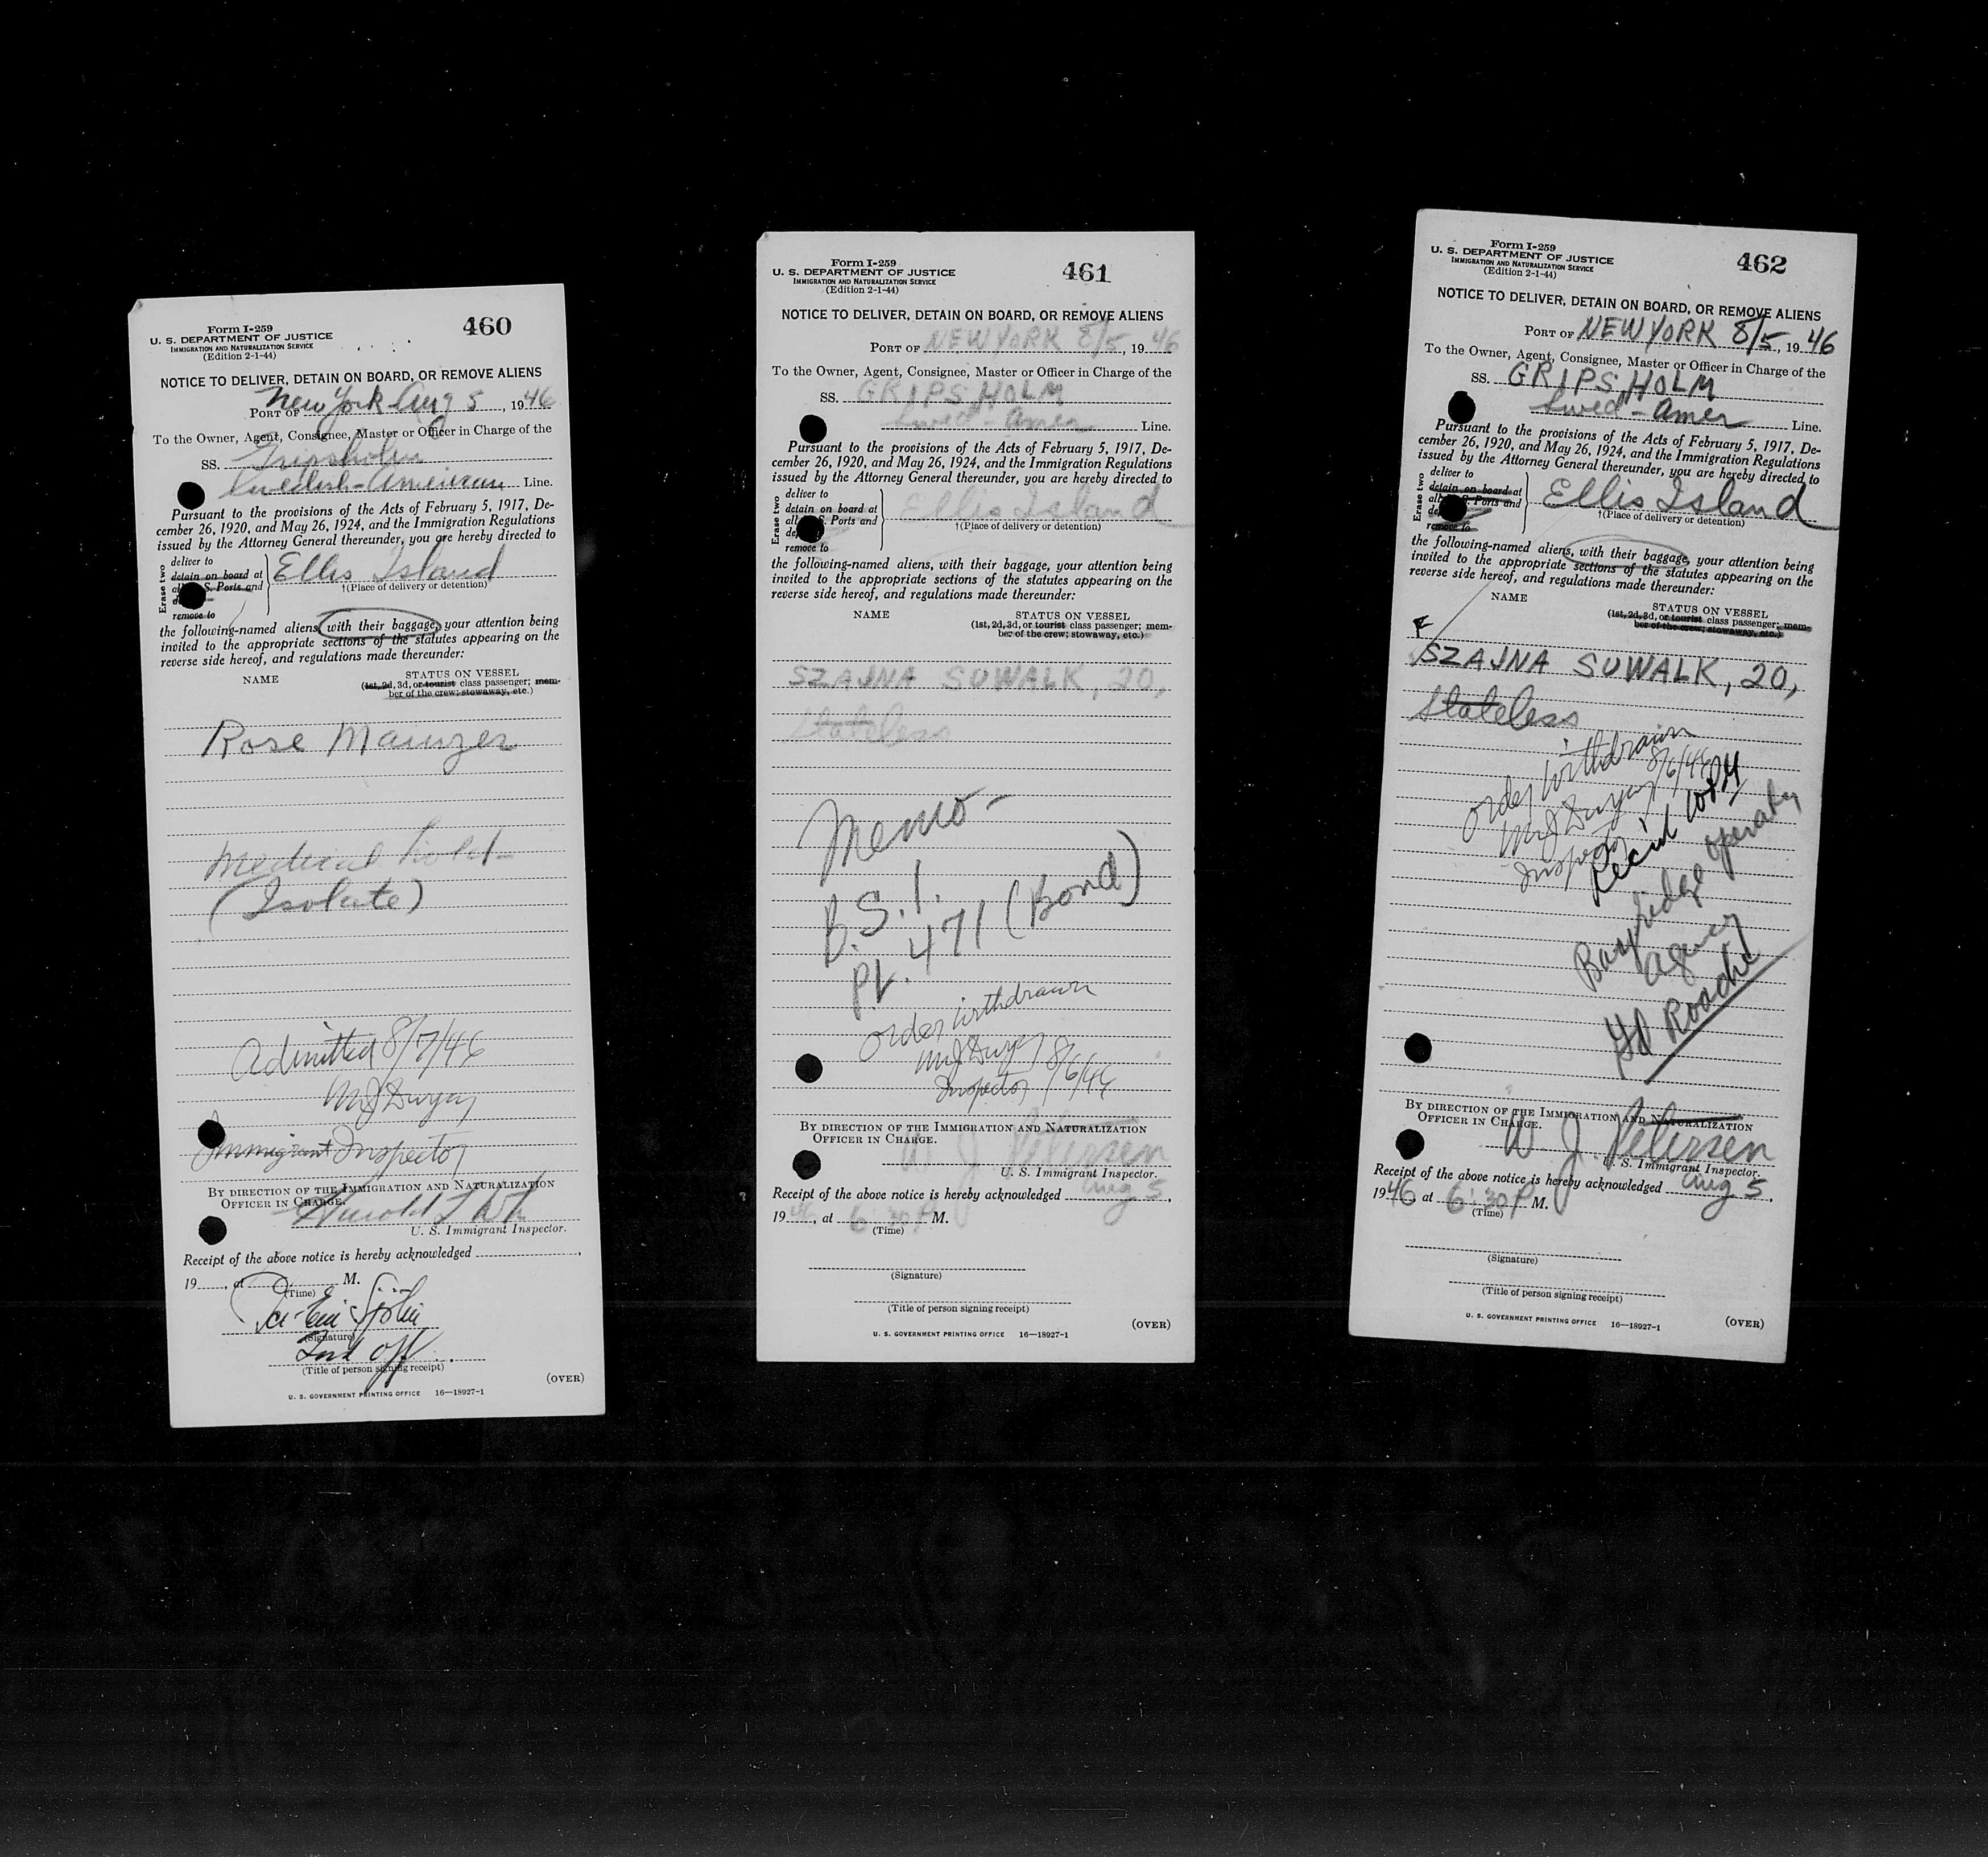 Form I-259
U. S. DEPARTMENT OF JUSTICE
IMMIGRATION AND NATURALIZATION SERVICE
(Edition 2-1-44)
460
NOTICE TO DELIVER, DETAIN ON BOARD, OR REMOVE ALIENS
PORT OF New York Aug 5, 1946
To the Owner, Agent, Consignee, Master or Officer in Charge of the
SS. Gripsholm
Swedish-American Line.
Pursuant to the provisions of the Acts of February 5, 1917, De-
cember 26, 1920, and May 26, 1924, and the Immigration Regulations
issued by the Attorney General thereunder, you are hereby directed to
Erase two
deliver to
detain on board at
all S. Ports and
remove to
Ellis Island
†(Place of delivery or detention)
the following-named aliens, with their baggage, your attention being
invited to the appropriate sections of the statutes appearing on the
reverse side hereof, and regulations made thereunder:
NAME
STATUS ON VESSEL
(1st, 2d, 3d, or tourist class passenger; mem-
ber of the crew; stowaway, etc.)
Rose Mainzer
Medical hold-
(Isolate)
Admitted 8/7/46
Immigrant Inspector
BY DIRECTION OF THE IMMIGRATION AND NATURALIZATION
OFFICER IN CHARGE.
Harold
U. S. Immigrant Inspector.
Receipt of the above notice is hereby acknowledged
19, at M.
(Time)
(Signature)
(Title of person signing receipt)
(OVER)
U. S. GOVERNMENT PRINTING OFFICE 16—18927-1
Form I-259
U. S. DEPARTMENT OF JUSTICE
IMMIGRATION AND NATURALIZATION SERVICE
(Edition 2-1-44)
461
NOTICE TO DELIVER, DETAIN ON BOARD, OR REMOVE ALIENS
PORT OF NEW YORK 8/5, 1946
To the Owner, Agent, Consignee, Master or Officer in Charge of the
SS. GRIPSHOLM
Swed-Amer Line.
Pursuant to the provisions of the Acts of February 5, 1917, De-
cember 26, 1920, and May 26, 1924, and the Immigration Regulations
issued by the Attorney General thereunder, you are hereby directed to
Erase two
deliver to
detain on board at
all S. Ports and
remove to
Ellis Island
†(Place of delivery or detention)
the following-named aliens, with their baggage, your attention being
invited to the appropriate sections of the statutes appearing on the
reverse side hereof, and regulations made thereunder:
NAME
STATUS ON VESSEL
(1st, 2d, 3d, or tourist class passenger; mem-
ber of the crew; stowaway, etc.)
SZAJNA SUWALK, 20,
Stateless
Memo-
B.S.I.
Pt. 471 (Bond)
Order Withdrawn
8/6/46
Inspector
BY DIRECTION OF THE IMMIGRATION AND NATURALIZATION
OFFICER IN CHARGE.
W. J. Petersen
U. S. Immigrant Inspector.
Receipt of the above notice is hereby acknowledged Aug 5,
1946, at 6:30 P M.
(Time)
(Signature)
(Title of person signing receipt)
(OVER)
U. S. GOVERNMENT PRINTING OFFICE 16—18927-1
Form I-259
U. S. DEPARTMENT OF JUSTICE
IMMIGRATION AND NATURALIZATION SERVICE
(Edition 2-1-44)
462
NOTICE TO DELIVER, DETAIN ON BOARD, OR REMOVE ALIENS
PORT OF NEW YORK 8/5, 1946
To the Owner, Agent, Consignee, Master or Officer in Charge of the
SS. GRIPSHOLM
Swed-Amer Line.
Pursuant to the provisions of the Acts of February 5, 1917, De-
cember 26, 1920, and May 26, 1924, and the Immigration Regulations
issued by the Attorney General thereunder, you are hereby directed to
Erase two
deliver to
detain on board at
all S. Ports and
remove to
Ellis Island
†(Place of delivery or detention)
the following-named aliens, with their baggage, your attention being
invited to the appropriate sections of the statutes appearing on the
reverse side hereof, and regulations made thereunder:
NAME
STATUS ON VESSEL
(1st, 2d, 3d, or tourist class passenger; mem-
ber of the crew; stowaway, etc.)
SZAJNA SUWALK, 20,
Stateless
Order Withdrawn
8/6/46
Inspector
Rec'd 10 PM
Bayridge Operating
Agency
Gd Roache
BY DIRECTION OF THE IMMIGRATION AND NATURALIZATION
OFFICER IN CHARGE.
W. J. Petersen
U. S. Immigrant Inspector.
Receipt of the above notice is hereby acknowledged Aug 5,
1946 at 6:30 P M.
(Time)
(Signature)
(Title of person signing receipt)
(OVER)
U. S. GOVERNMENT PRINTING OFFICE 16—18927-1